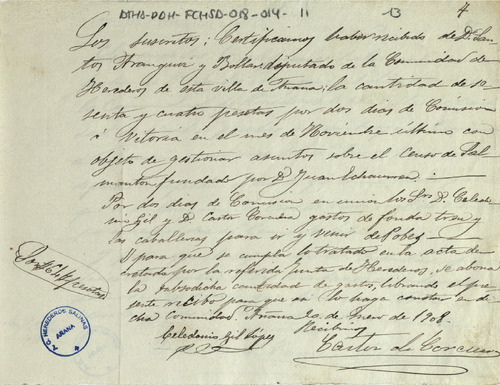 DTHA-DOH-FCHSD-018-014-11
13
4
Los suscritos; Certificamos haber recibido de D. San-
tos Frangués y Bollar, diputado de la Comunidad de
Herederos de esta villa de Añana; la cantidad de se-
senta y cuatro pesetas por dos dias de Comision
á Vitoria en el mes de Noviembre último con
objeto de gestionar asuntos sobre el Censo de Sal
fundado por D. Juan
Por dos dias de Comision en union los Srs D. Celedo-
nio Gil y D. Castor gastos de fonda
y las caballerias para ir y venir de Pobes
Y para que se cumpla lo tratado en la acta de-
cretada por la referida junta de Herederos, se abona
la susodicha cantidad de gasto, librando el pre-
sente recibo para que asi lo haga constar en di-
cha comunidad. Añana 20 de Enero de 1908.
Recibimos
Son 64 pesetas
Celedonio Gil López
Castor de
T.C. HEREDEROS SALINAS
AÑANA